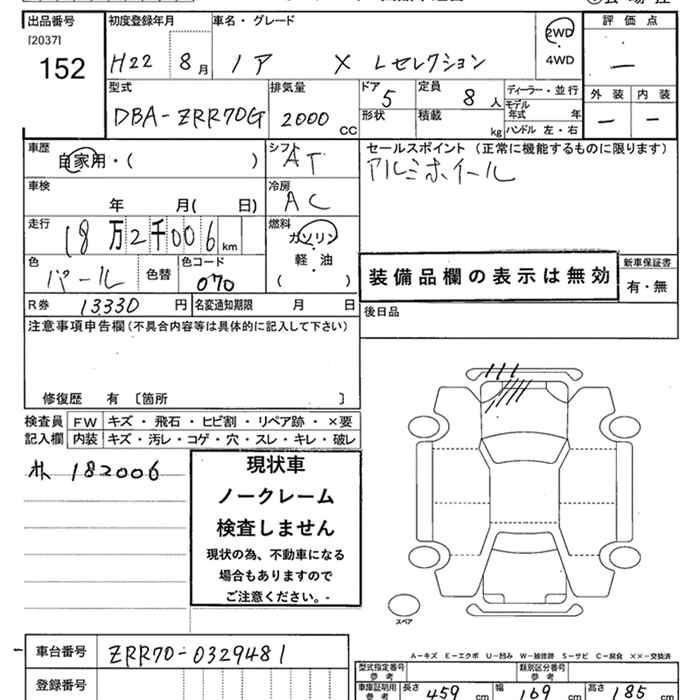 出品番号 初度登録年月 車名・グレード 2WD 評価点
[2037] 152 H22 8月 ノア X Lセレクション ・ 4WD —
型式 排気量 ドア 定員 ディーラー・並行 外装 内装
DBA-ZRR70G 2000 CC 5 8人 モデル年式 年 — —
形状 積載 kg ハンドル 左・右
車歴 自家用・( ) シフト AT セールスポイント (正常に機能するものに限ります)
アルミホイール
車検 年 月( 日) 冷房 AC
走行 18万2千006km 燃料 ガソリン・軽・油 ( )
色 パール 色替 色コード 070
装備品欄の表示は無効 新車保証書 有・無
R券 13330円 名変通知期限 月 日 後日品
注意事項申告欄(不具合内容等は具体的に記入して下さい)
修復歴 有 〔箇所 〕
検査員 FW キズ・飛石・ヒビ割・リペア跡・×要
記入欄 内装 キズ・汚レ・コゲ・穴・スレ・キレ・破レ
182006
現状車
ノークレーム
検査しません
現状の為、不動車になる
場合もありますので
ご注意ください。-
スペア
車台番号 ZRR70-0329481
A-キズ E-エクボ U-凹み W-補修跡 S-サビ C-腐食 ××-交換済
登録番号
型式指定番号 参考 類別区分番号 参考
車庫証明用 参考 長さ 459cm 幅 169cm 高さ 185cm